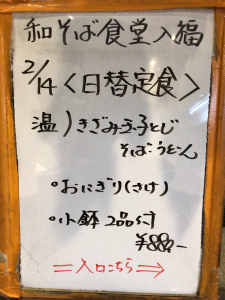 和そば食堂入福
2/14 <日替定食>
温)きざみ玉子とじ
そば・うどん
・おにぎり(さけ)
・小鉢 2品付
¥880,-
⇒入口こちら⇒